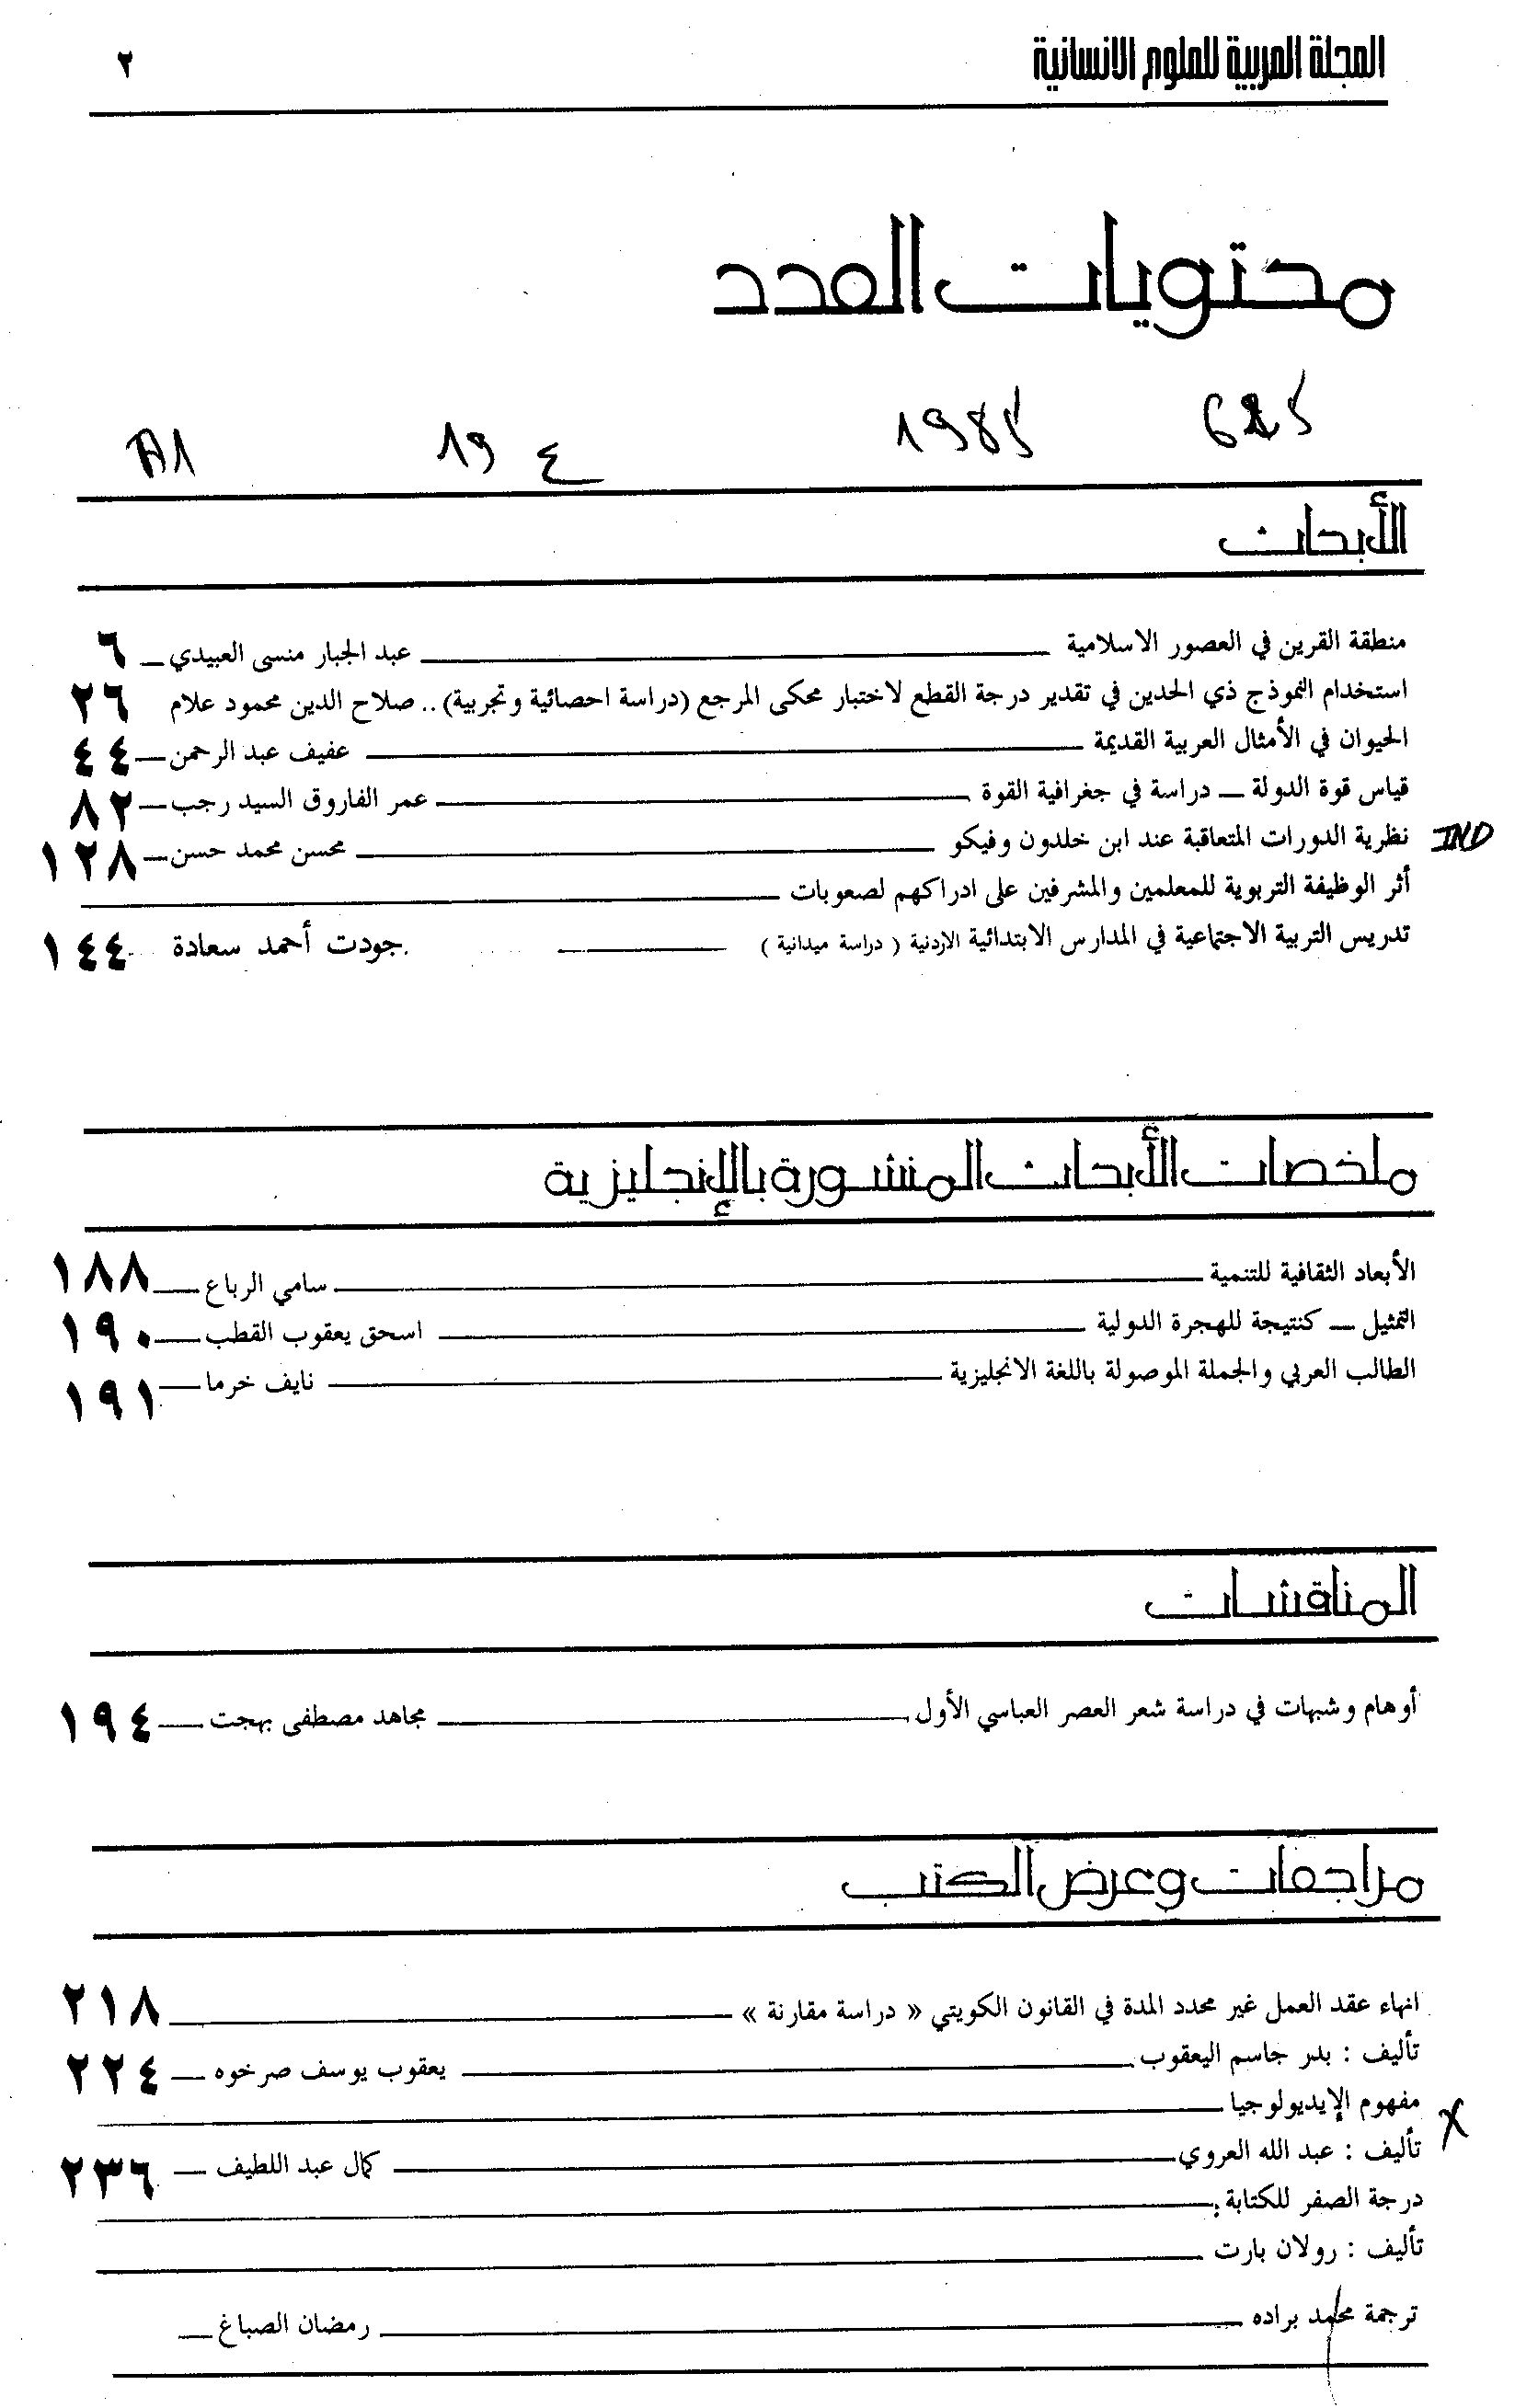 المجلة العربية للعلوم الانسانية ٢
محتويات العدد
1985 ع 19 A1
الأبحاث
منطقة القرين في العصور الاسلامية عبد الجبار منسى العبيدي ٦
استخدام النموذج ذي الحدين في تقدير درجة القطع لاختبار محكى المرجع (دراسة احصائية وتجربية) .. صلاح الدين محمود علام ٢٦
الحيوان في الأمثال العربية القديمة عفيف عبد الرحمن ٤٤
قياس قوة الدولة — دراسة في جغرافية القوة عمر الفاروق السيد رجب ٨٢
نظرية الدورات المتعاقبة عند ابن خلدون وفيكو محسن محمد حسن ١٢٨ IND
أثر الوظيفة التربوية للمعلمين والمشرفين على ادراكهم لصعوبات
تدريس التربية الاجتماعية في المدارس الابتدائية الاردنية ( دراسة ميدانية ) جودت أحمد سعادة ١٤٤
ملخصات الأبحاث المنشورة بالإنجليزية
الأبعاد الثقافية للتنمية سامي الرباع ١٨٨
التمثيل — كنتيجة للهجرة الدولية اسحق يعقوب القطب ١٩٠
الطالب العربي والجملة الموصولة باللغة الانجليزية نايف خرما ١٩١
المناقشات
أوهام وشبهات في دراسة شعر العصر العباسي الأول مجاهد مصطفى بهجت ١٩٤
مراجعات وعرض الكتب
انهاء عقد العمل غير محدد المدة في القانون الكويتي « دراسة مقارنة » ٢١٨
تأليف : بدر جاسم اليعقوب يعقوب يوسف صرخوه ٢٢٤
مفهوم الإيديولوجيا X
تأليف : عبد الله العروي كمال عبد اللطيف ٢٣٦
درجة الصفر للكتابة :
تأليف : رولان بارت
ترجمة محمد براده رمضان الصباغ